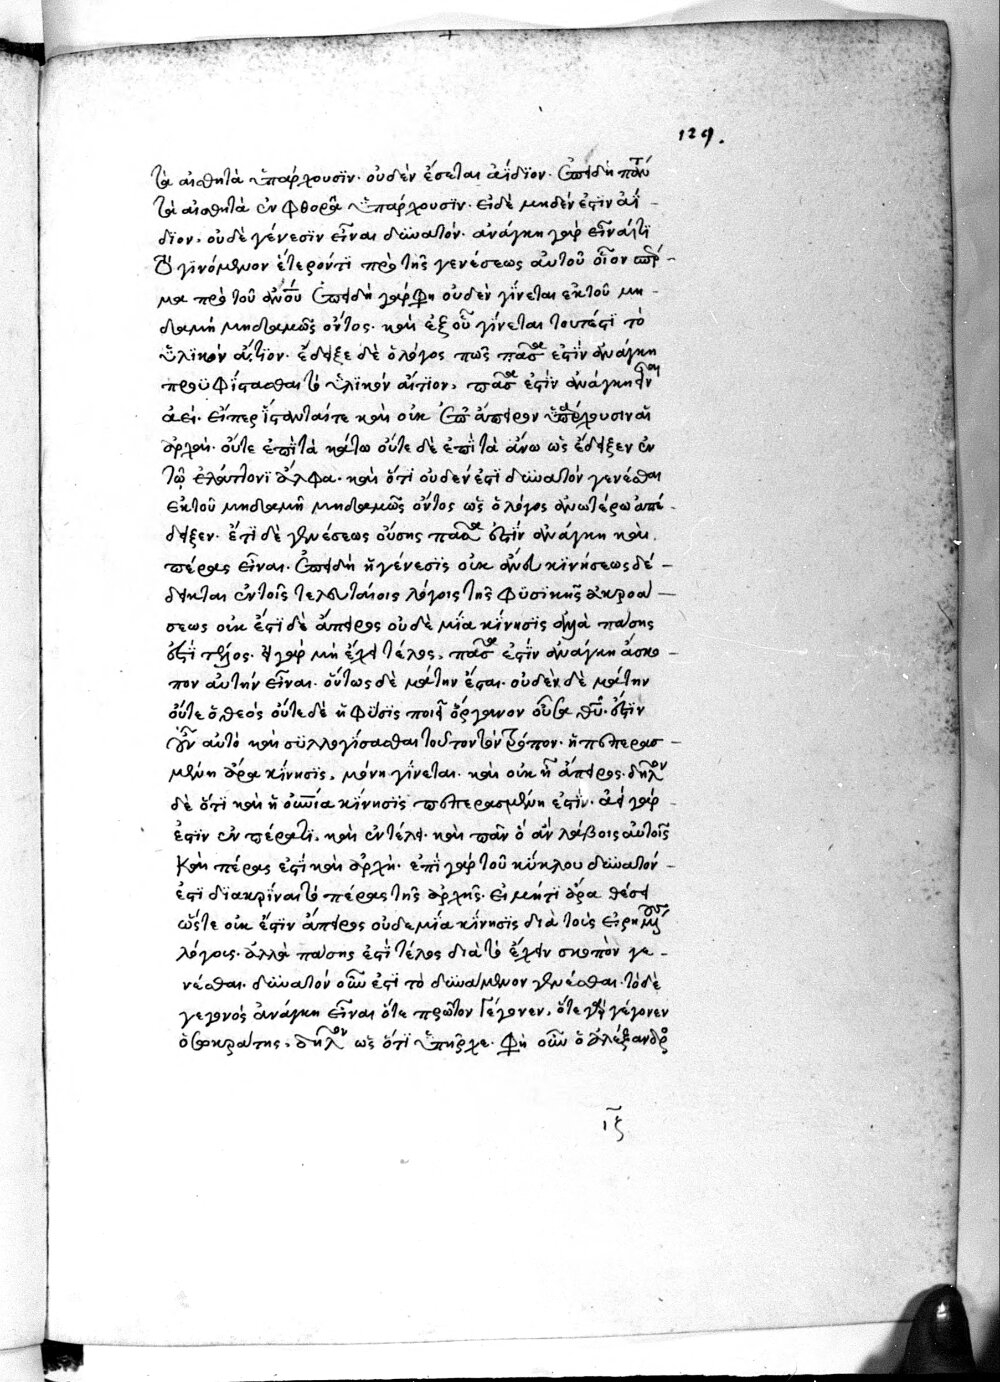 129.
τὰ αἰσθητὰ ὑπάρχουσϊν· οὐδὲν ἔσεται ἀΐδϊον· ἐπειδὴ πάντα
τὰ αἰσθητὰ ἐν φθορᾶ ὑπάρχουσϊν· εἰ δὲ μηδέν ἐστϊν ἀΐ-
δϊον, οὐδὲ γένεσϊν εἶναι δυνατόν· ἀνάγκη γὰρ εἶναί τι
τὸ γϊνόμενον ἕτερόν τϊ πρὸ τῆς γενέσεως αὐτοῦ οἷον σπέρ-
μα πρὸ τοῦ ἀνου ἐπειδὴ γάρ φη οὐδὲν γίνεται ἐκ τοῦ μη-
δαμῆ μηδαμῶς ὄντος· καὶ ἐξ οὗ γίνεται τουτέστι τὸ
ὑλϊκὸν αἴτϊον· ἔδειξε δὲ ὁ λόγος πῶς πᾶσα ἐστὶν ἀνάγκη
προϋφίστασθαι τὸ ὑλϊκὸν αἴτϊον, πᾶσα ἐστὶν ἀνάγκη εἶναι
ἀεί· εἴπερ ἵστανταί τε καὶ οὐκ ἐπ ἄπειρον ὑπάρχουσιν αἱ
ἀρχαί· οὔτε ἐπὶ τὰ κάτω οὔτε δὲ ἐπὶ τὰ ἄνω ὡς ἔδειξεν ἐν
τῷ ἐλάττονϊ ἄλφα· καὶ ὅτϊ οὐδέν ἐστι δυνατόν γενέσθαι
ἐκ τοῦ μηδαμῆ μηδαμῶς ὄντος ὡς ὁ λόγος ἀνωτέρω ἀπέ-
δειξεν· ἔτϊ δὲ γενέσεως οὔσης πᾶσα ἐστὶν ἀνάγκη καὶ
πέρας εἶναι· ἐπειδὴ ἡ γένεσϊς οὐκ ἄνευ κϊνήσεως δέ-
δεικται ἐν τοῖς τελευταίοις λόγοις τῆς φυσϊκῆς ἀκροά-
σεως οὐκ ἔστϊ δὲ ἄπειρος οὐδὲ μία κίνησϊς ἀλλὰ πάσης
ἐστὶ τέλος· εἰ γὰρ μὴ ἔχει τέλος, πᾶσα ἐστὶν ἀνάγκη ἄσκο-
πον αὐτὴν εἶναι· οὕτως δὲ μάτην ἔσται· οὐδὲν δὲ μάτην
οὔτε ὁ θεὸς οὔτε δὲ ἡ φύσϊς ποιεῖ ὄργανον οὖσα θυ· ἔστϊν
οὖν αὐτὸ καὶ συλλογίσασθαι τοῦτον τὸν τρόπον· ἡ πεπερασ-
μένη ἄρα κίνησϊς, μόνη γίνεται· καὶ οὐκ ἡ ἄπειρος· δῆλον
δὲ ὅτϊ καὶ ἡ οὐνία κίνησϊς πεπερασμένη ἐστὶν· ἀεὶ γάρ
ἐστϊν ἐν πέρατϊ, καὶ ἐν τέλει· καὶ πᾶν ὃ ἂν λάβοις αὐτοῖς
καὶ πέρας ἐστὶ καὶ ἀρχή· ἐπὶ γὰρ τοῦ κύκλου δυνατόν-
ἐστϊ διακρῖναι τὸ πέρας τῆς ἀρχῆς· εἰ μήτϊ ἄρα θέσει
ὥστε οὐκ ἔστϊν ἄπειρος οὐδεμία κίνησϊς διὰ τοὺς εἰρημένους
λόγοις· ἀλλὰ πάσης ἐστὶ τέλος διὰ τὸ ἔχειν σκοπὸν γε-
νέσθαι· δυνατόν οὖν ἐστϊ τὸ δυνάμενον γενέσθαι· τὸ δὲ
γεγονός ἀνάγκη εἶναι ὅτε πρῶτον γέγονεν, ὅτε γὰρ γέγονεν
ὁ σωκράτης, δῆλον ὡς ὅτϊ ὑπῆρχε· φη οὖν ὁ ἀλέξανδρος
ιξ